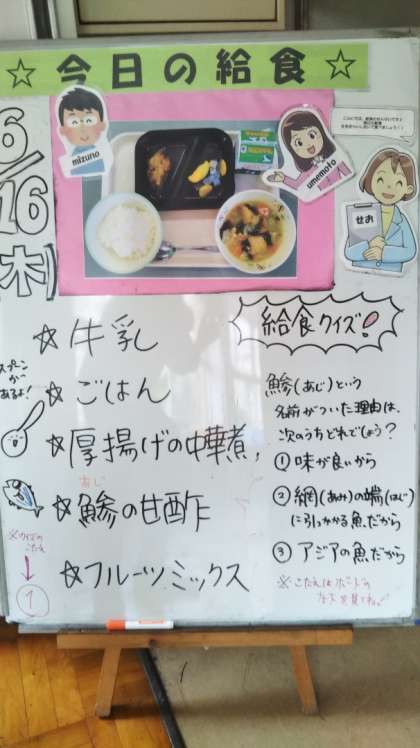 ☆今日の給食☆
6/16(木)
mizuno
umemoto
せお
☆牛乳
☆ごはん
スプーンがあるよ!
☆厚揚げの中華煮
あじ
☆鯵の甘酢
☆フルーツミックス
※クイズのこたえ
↓
①
給食クイズ!
鯵(あじ)という
名前がついた理由は、
次のうちどれでしょう?
①味が良いから
②網(あみ)の端(はじ)
に引っかかる魚だから
③アジアの魚だから
※こたえはボードの